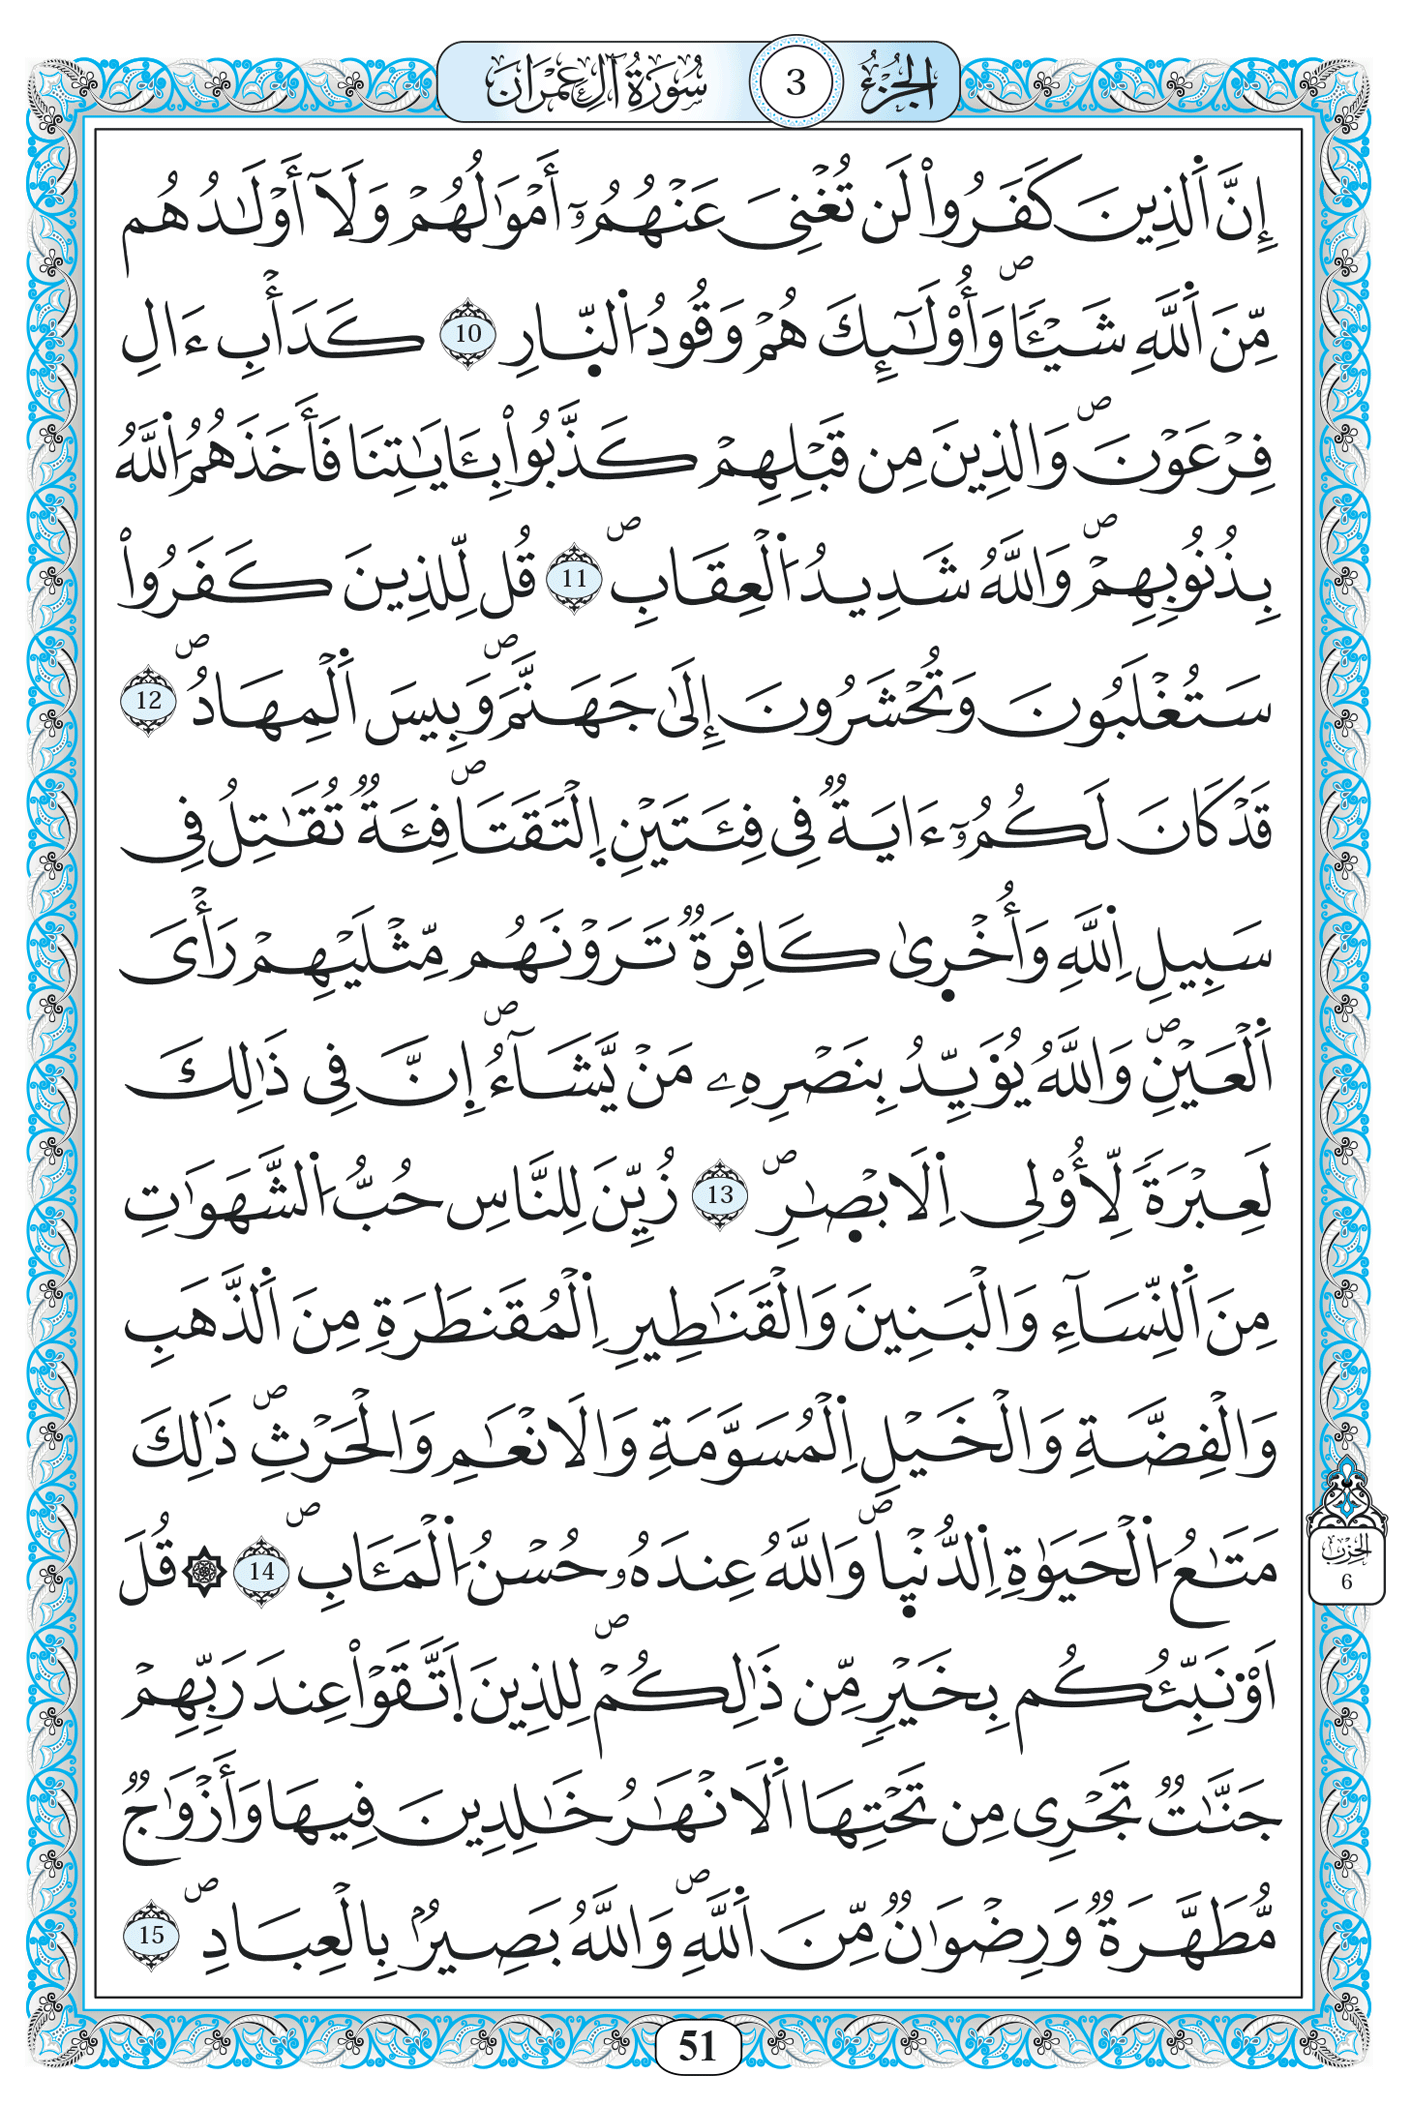 الجزء 3 سورة آل عمران
إِنَّ اَ۬لذِينَ كَفَرُواْ لَن تُغْنِيَ عَنْهُمُۥٓ أَمْوَٰلُهُمْ وَلَآ أَوْلَٰدُهُم
مِّنَ اَ۬للَّهِ شَيْـٔاٗۖ وَأُوْلَٰٓئِكَ هُمْ وَقُودُ اُ۬لنّ۪ارِ 10 كَدَأْبِ ءَالِ
فِرْعَوْنَۖ وَالذِينَ مِن قَبْلِهِمْ كَذَّبُواْ بِـَٔايَٰتِنَا فَأَخَذَهُمُ اُ۬للَّهُ
بِذُنُوبِهِمْۖ وَاللَّهُ شَدِيدُ اُ۬لْعِقَابِۖ 11 قُل لِّلذِينَ كَفَرُواْ
سَتُغْلَبُونَ وَتُحْشَرُونَ إِلَىٰ جَهَنَّمَۖ وَبِيسَ اَ۬لْمِهَادُۖ 12
قَدْ كَانَ لَكُمُۥٓ ءَايَةٞ فِي فِئَتَيْنِ اِ۪لْتَقَتَاۖ فِئَةٞ تُقَٰتِلُ فِي
سَبِيلِ اِ۬للَّهِ وَأُخْر۪يٰ كَافِرَةٞ تَرَوْنَهُم مِّثْلَيْهِمْ رَأْيَ
اَ۬لْعَيْنِۖ وَاللَّهُ يُؤَيِّدُ بِنَصْرِهِۦ مَنْ يَّشَآءُۖ إِنَّ فِي ذَٰلِكَ
لَعِبْرَةٗ لِّأُوْلِي اِ۬لَابْصٰ۪رِۖ 13 زُيِّنَ لِلنَّاسِ حُبُّ اُ۬لشَّهَوَٰتِ
مِنَ اَ۬لنِّسَآءِ وَالْبَنِينَ وَالْقَنَٰطِيرِ اِ۬لْمُقَنطَرَةِ مِنَ اَ۬لذَّهَبِ
وَالْفِضَّةِ وَالْخَيْلِ اِ۬لْمُسَوَّمَةِ وَالَانْعَٰمِ وَالْحَرْثِۖ ذَٰلِكَ
مَتَٰعُ اُ۬لْحَيَوٰةِ اِ۬لدُّنْي۪اۖ وَاللَّهُ عِندَهُۥ حُسْنُ اُ۬لْمَـَٔابِۖ 14 ۞ قُلَ
اَوْ۬نَبِّئُكُم بِخَيْرٖ مِّن ذَٰلِكُمْۖ لِلذِينَ اَ۪تَّقَوْاْ عِندَ رَبِّهِمْ
جَنَّٰتٞ تَجْرِي مِن تَحْتِهَا اَ۬لَانْهَٰرُ خَٰلِدِينَ فِيهَا وَأَزْوَٰجٞ
مُّطَهَّرَةٞ وَرِضْوَٰنٞ مِّنَ اَ۬للَّهِۖ وَاللَّهُ بَصِيرُۢ بِالْعِبَادِۖ 15
الحزب
6
51